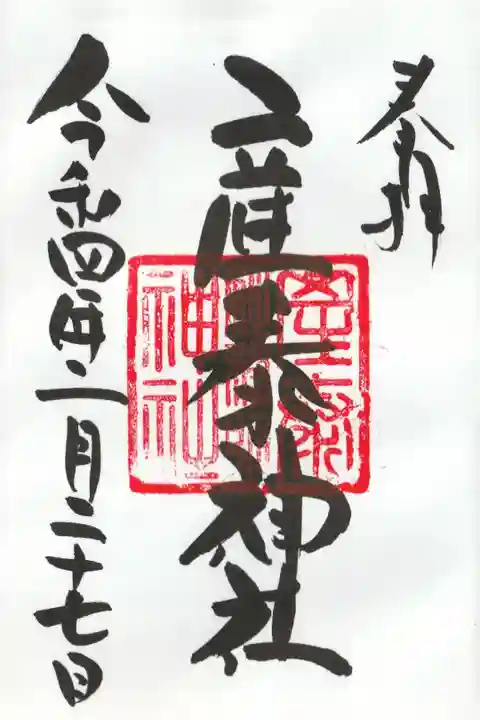 奉拝
産泰神社
令和四年二月二十七日
神社